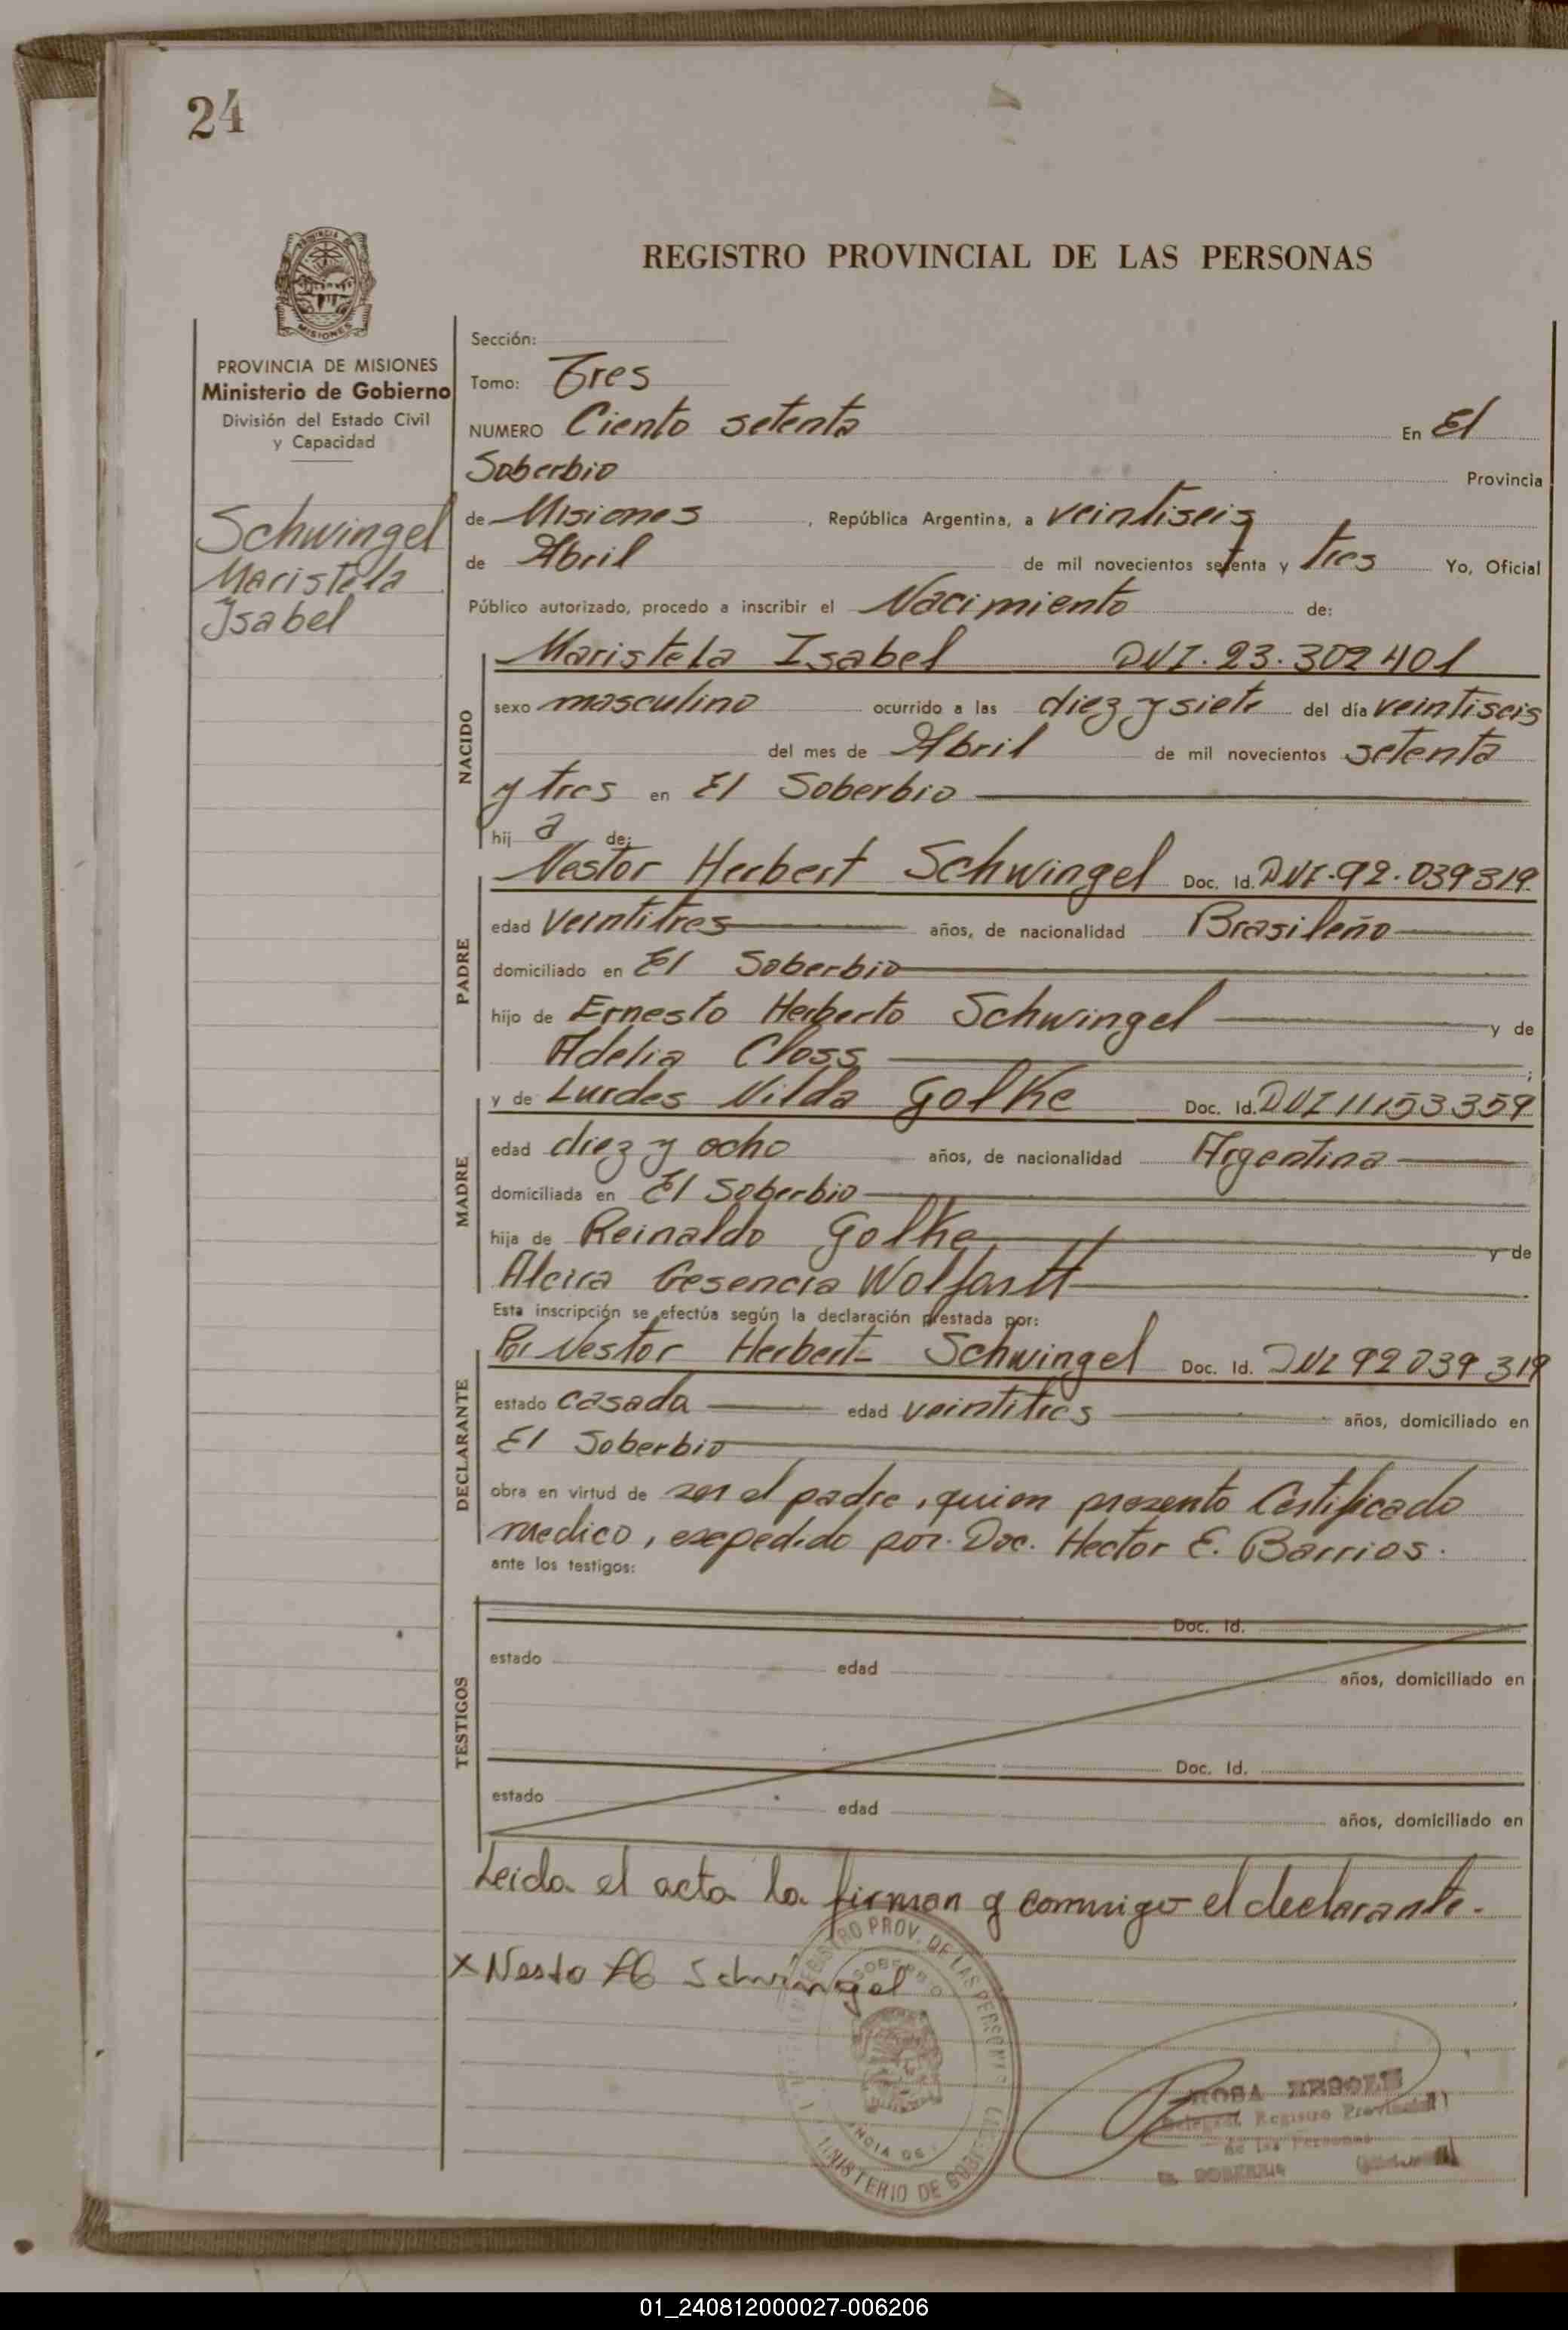 24
REGISTRO PROVINCIAL DE LAS PERSONAS
PROVINCIA DE
MISIONES
PROVINCIA DE MISIONES
Ministerio de Gobierno
División del Estado Civil
y Capacidad
Schwingel
Maristela
Isabel
Sección:
Tomo: Tres
NUMERO Ciento setenta En El
Soberbio Provincia
de Misiones, República Argentina, a veintiseis
de Abril de mil novecientos setenta y tres Yo, Oficial
Público autorizado, procedo a inscribir el Nacimiento de:
NACIDO
Maristela Isabel DNI. 23.302401
sexo masculino ocurrido a las diez y siete del día veintiseis
del mes de Abril de mil novecientos setenta
y tres en El Soberbio
hij a de:
PADRE
Nestor Herbert Schwingel Doc. Id. DNI.92.039319
edad veintitres años, de nacionalidad Brasileño
domiciliado en El Soberbio
hijo de Ernesto Herberto Schwingel y de
Adelia Closs ;
MADRE
y de Lurdes Nilda Golke Doc. Id. DNI 11153359
edad diez y ocho años, de nacionalidad Argentina
domiciliada en El Soberbio
hija de Reinaldo Golke y de
Alcira Gesencia Wolfartt
Esta inscripción se efectúa según la declaración prestada por:
DECLARANTE
Por Nestor Herbert Schwingel Doc. Id. DNI 92039319
estado casada edad veintitres años, domiciliado en
El Soberbio
obra en virtud de ser el padre, quien presento Certificado
medico, exepedido por. Doc. Hector E. Barrios.
ante los testigos:
TESTIGOS
Doc. Id.
estado edad años, domiciliado en
Doc. Id.
estado edad años, domiciliado en
Leida el acta la firman q conmigo el declarante.
x Nesto Schwingel
REGISTRO PROV. DE LAS PERSONAS
SOBERBIO
MINISTERIO DE
ROSA
Delegada Registro Provincial
de las Personas
EL SOBERBIO
01_240812000027-006206